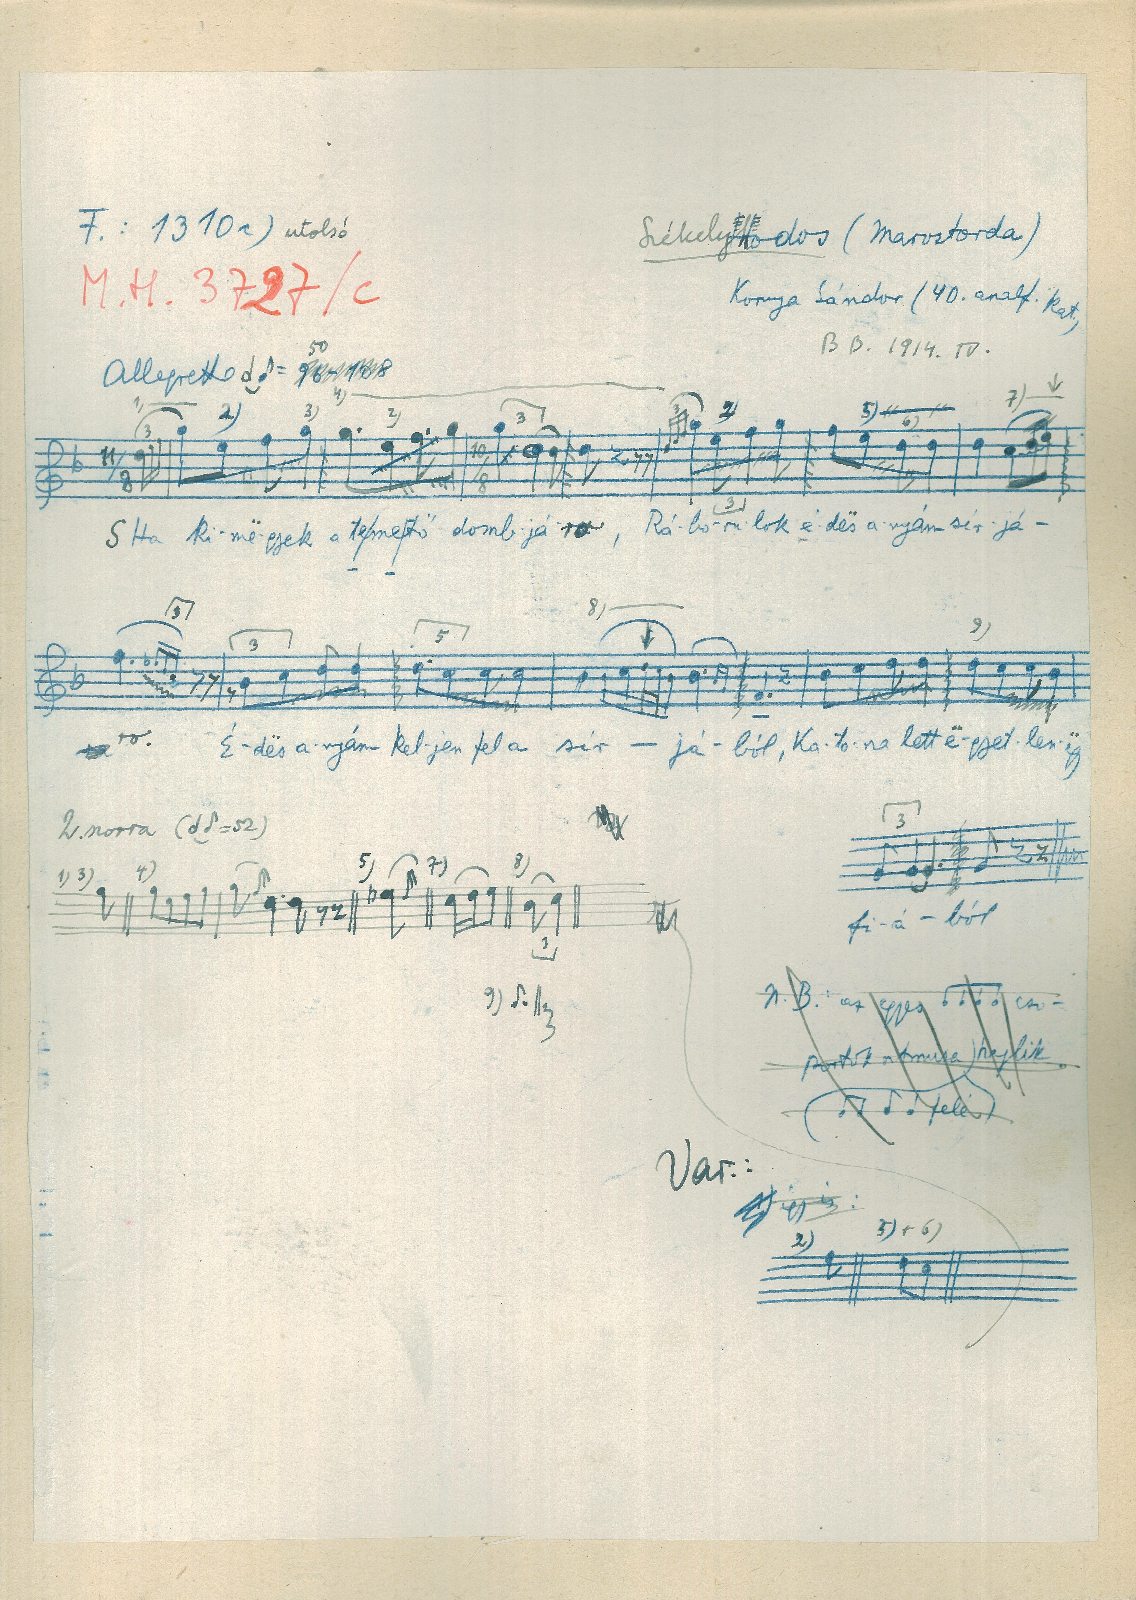 F.: 1310a) utolsó
Székelyhodos (Marostorda)
M.H. 3727/c
Konya Sándor (40. analf. kat.,
B B. 1914. IV.
50
Allegretto
1) 2) 3) 4) 2) 3 3 2) 5) 6) 7)
11/8 10/8
Ha ki-më-gyek a temető domb-já-ra, Rá-bo-ru-lok é-dës a-nyám sír-já-
3 3 5 8) 9)
ra. É-dës a-nyám kel-jen fel a sír-já-ból, Ka-to-na lett ë-gyet-len-ëgy
2. norra (=52)
3
1) 3) 4) 5) 7) 8)
3
fi-á-ból
9)
N. B.: az egyes cso-
portok ritmusa) hajlik
( felé)
Var.:
2) 5) + 6)